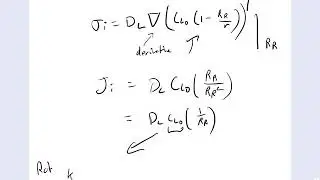 Ji = DL ∇ (CLO (1 - RR/r)) | RR
derivative
Ji = DL CLO (RR/RR²)
= DL CLO (1/RR)
Rat k